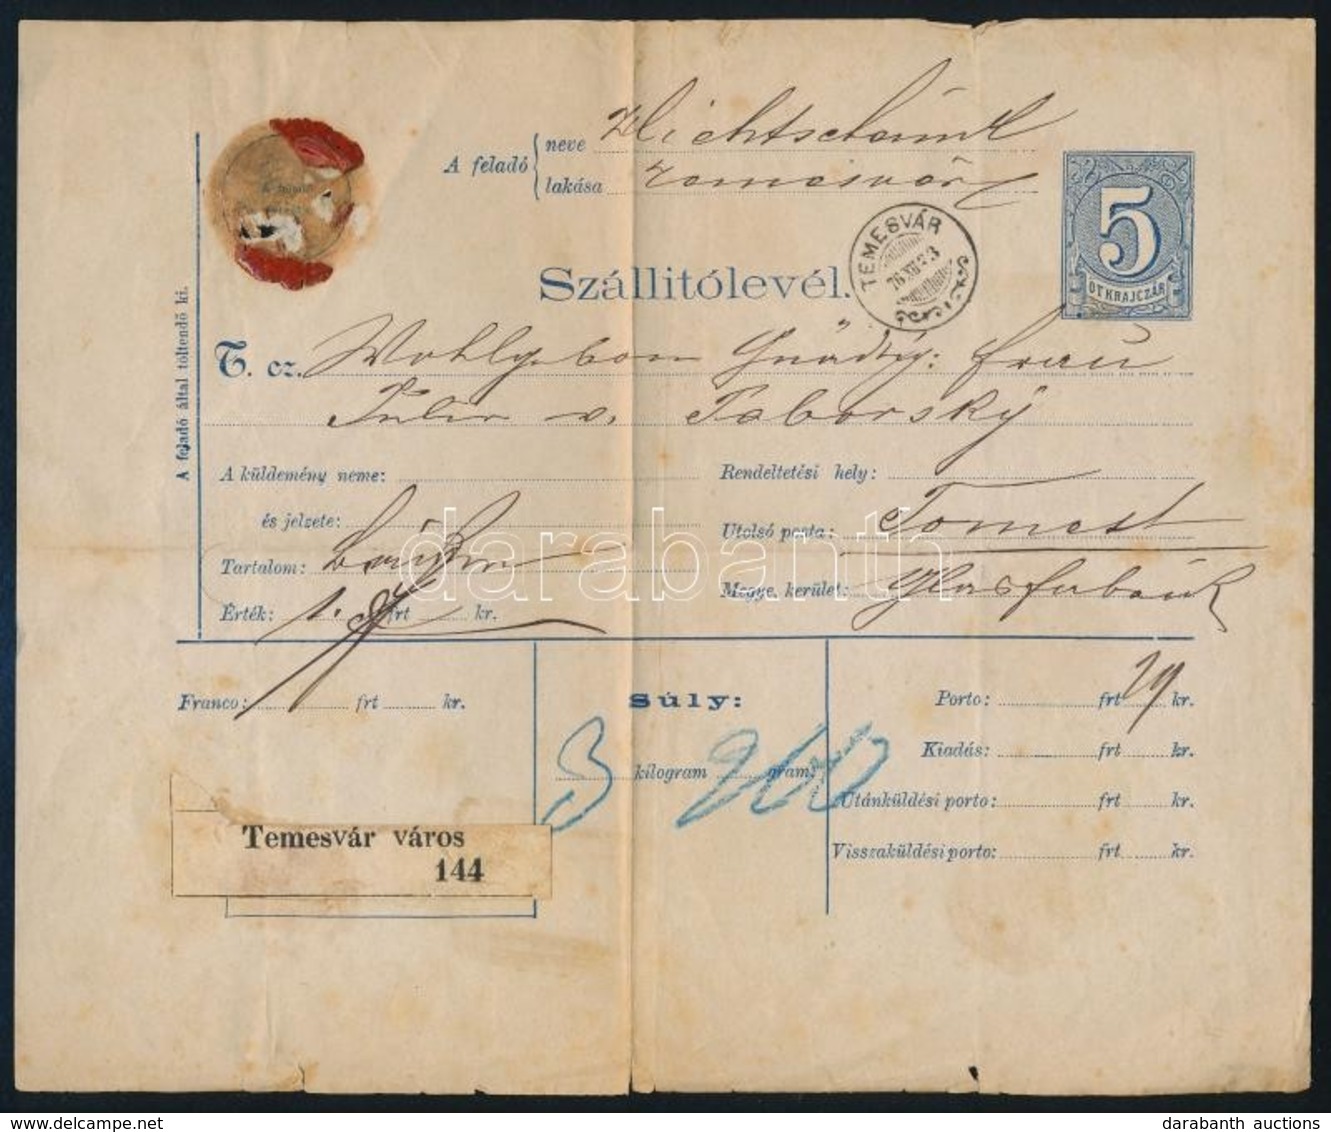 A feladó
neve
lakása Temesvár
TEMESVÁR
76 XII 23
5
ÖT KRAJCZÁR
Szállitólevél.
A feladó által töltendő ki.
T. cz. Wohlgeborn Gnädig: Frau
v. Taborsky
A küldemény neme:
Rendeltetési hely:
és jelzete:
Utolsó posta: Tomest
Tartalom:
Megye, kerület: Glasfabrik
Érték: frt kr.
Franco: frt kr.
Súly:
3 kilogram 200 gram.
Porto: frt 29 kr.
Kiadás: frt kr.
Utánküldési porto: frt kr.
Visszaküldési porto: frt kr.
Temesvár város
144
darabanth
darabanth auctions